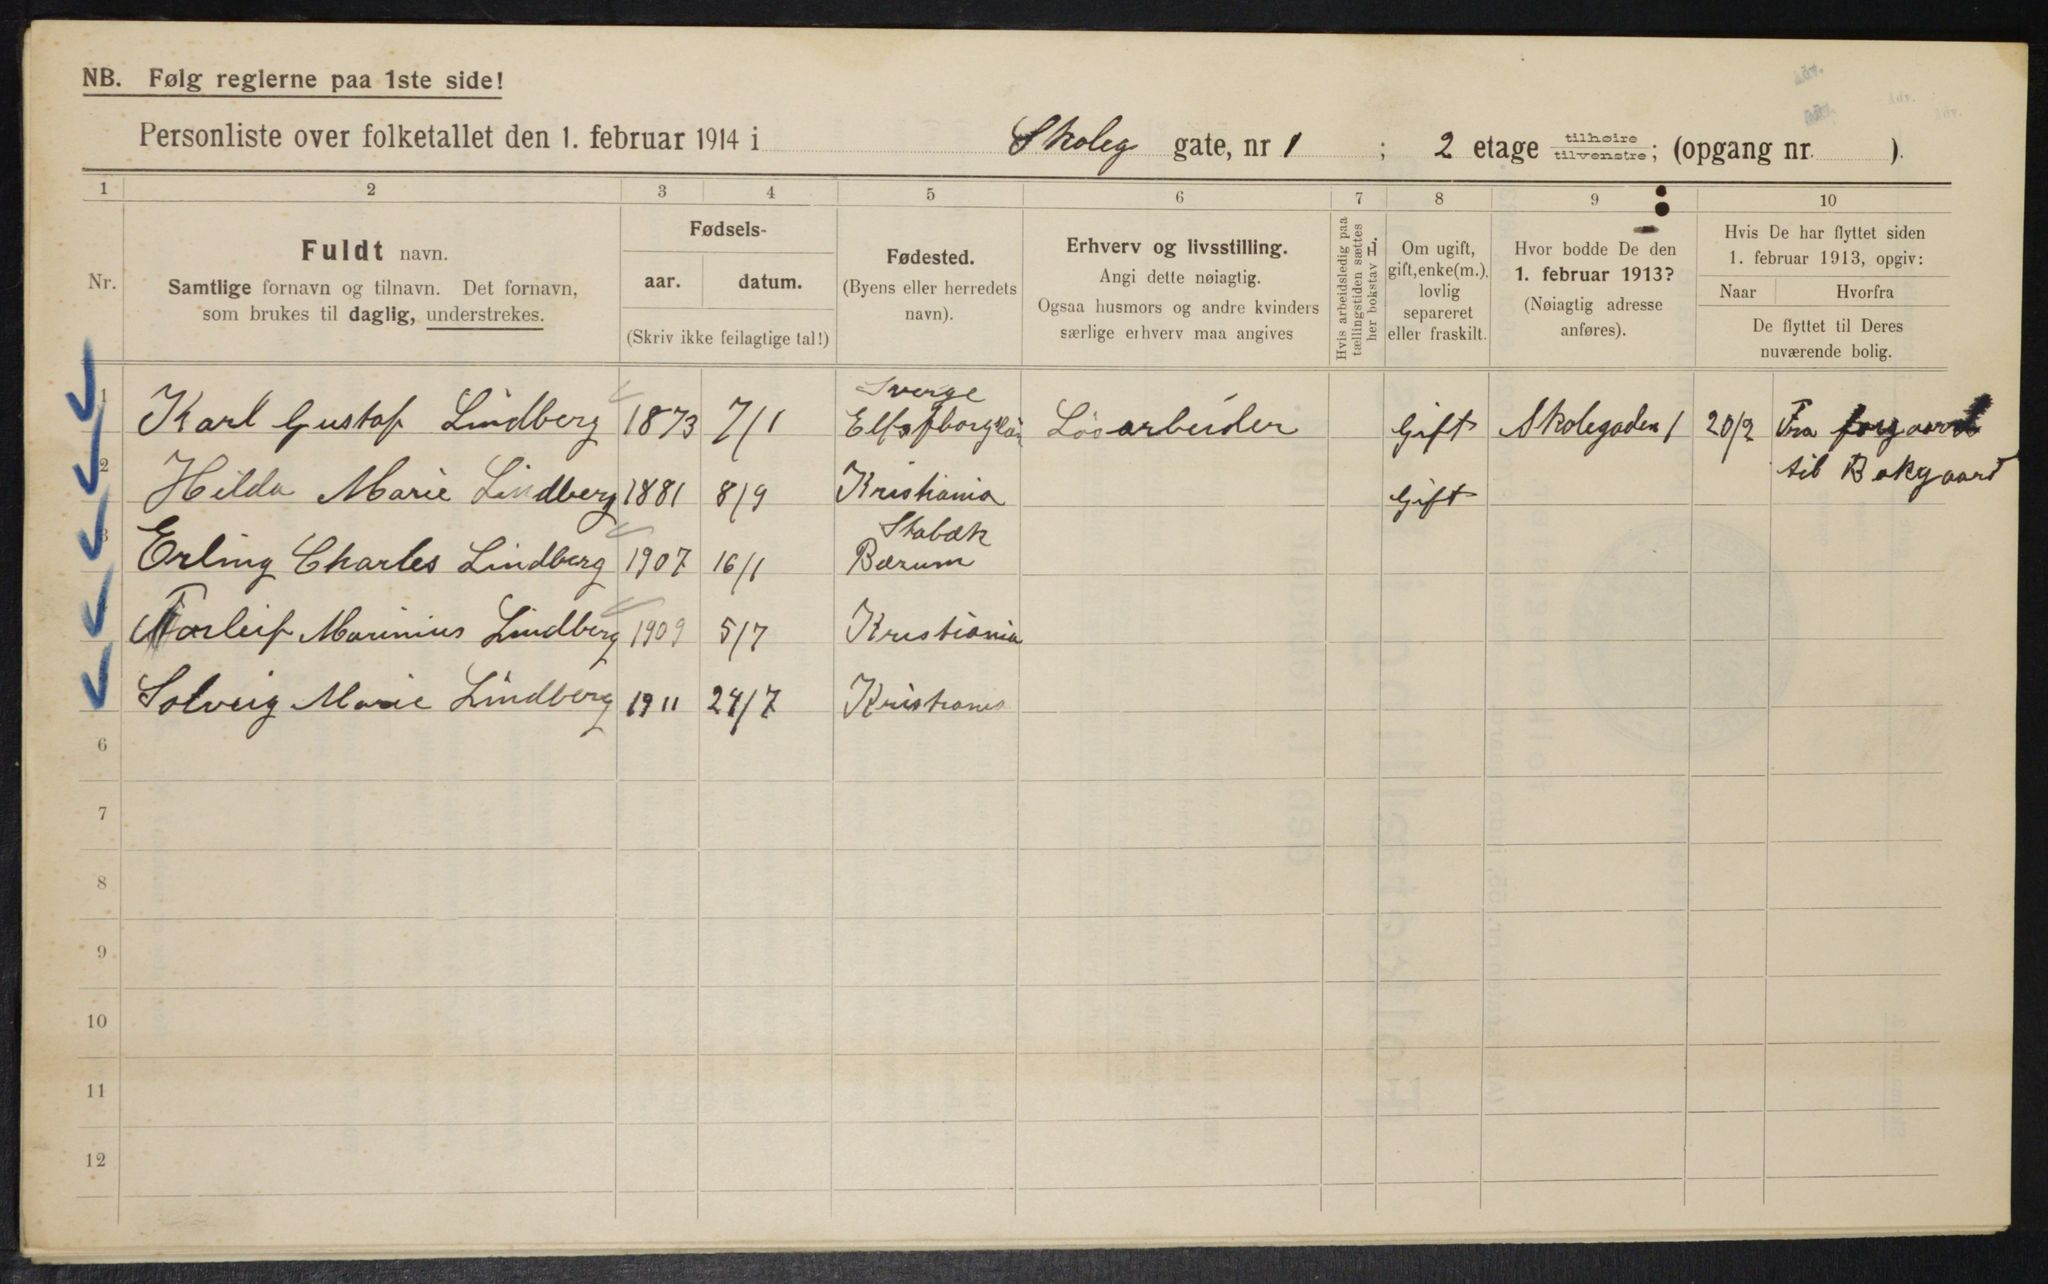 NB. Følg reglerne paa 1ste side!
Personliste over folketallet den 1. februar 1914 i Skoleg gate, nr 1 ; 2 etage tilhøire tilvenstre; (opgang nr. ).
1 2 3 4 5 6 7 8 9 10
Nr.
Fuldt navn.
Samtlige fornavn og tilnavn. Det fornavn,
som brukes til daglig, understrekes.
Fødsels-
aar. datum.
(Skriv ikke feilagtige tal!)
Fødested.
(Byens eller herredets
navn).
Erhverv og livsstilling.
Angi dette nøiagtig.
Ogsaa husmors og andre kvinders
særlige erhverv maa angives
Hvis arbeidsledig paa
tællingstiden sættes
her bokstav L.
Om ugift,
gift, enke(m.),
lovlig
separeret
eller fraskilt.
Hvor bodde De den
1. februar 1913?
(Nøiagtig adresse
anføres).
Hvis De har flyttet siden
1. februar 1913, opgiv:
Naar Hvorfra
De flyttet til Deres
nuværende bolig.
Sverge
1 Karl Gustaf Lindberg 1873 7/1 Løsarbeider Gift Skolegaden 1 20/2 Fra forgaard
til Bakgaard
2 Hilda Marie Lindberg 1881 8/9 Kristiania Gift
Stabæk
3 Erling Charles Lindberg 1907 16/1 Bærum
Torleif Marinius Lindberg 1909 5/7 Kristiania
Solveig Marie Lindberg 1911 24/7 Kristiania
6
7
8
9
10
11
12